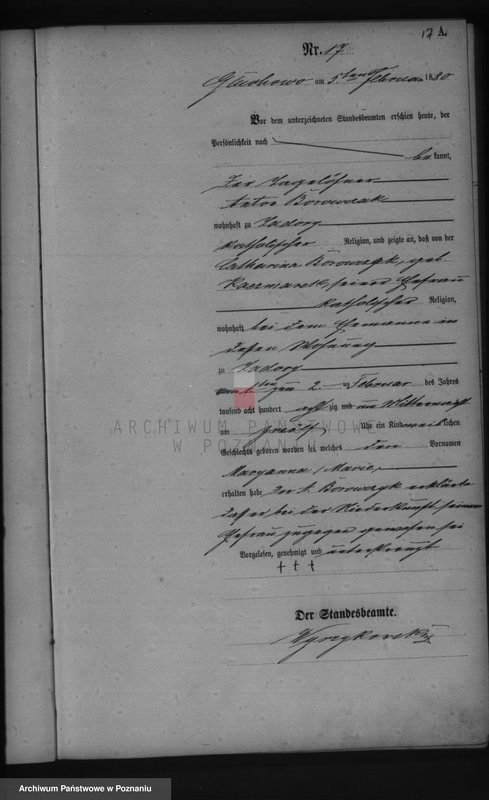 17 A.
Nr. 17
Gluchowo am 5ten Februar 1880
Vor dem unterzeichneten Standesbeamten erschien heute, der
Persönlichkeit nach
be kannt,
der Tagelöhner
Borowczak
wohnhaft zu Zadory
katholischer Religion, und zeigte an, daß von der
Catharina Borowczyk, geb.
Kaczmarek, seiner Ehefrau
katholischer Religion,
wohnhaft bei dem Ehemanne in
dessen Wohnung
zu Zadory
zum 2. ten Februar des Jahres
tausend acht hundert acht zig und um Mitternacht
um zwölf Uhr ein Kind weiblichen
Geschlechts geboren worden sei, welches den Vornamen
Maryanna /Marie/
erhalten habe. Der A. Borowczyk erklärte
daß er bei der Niederkunft seiner
Ehefrau zugegen gewesen sei
Vorgelesen, genehmigt und unterkreuzt
+ + +
Der Standesbeamte.
ARCHIWUM PAŃSTWOWE
W POZNANIU
Archiwum Państwowe w Poznaniu